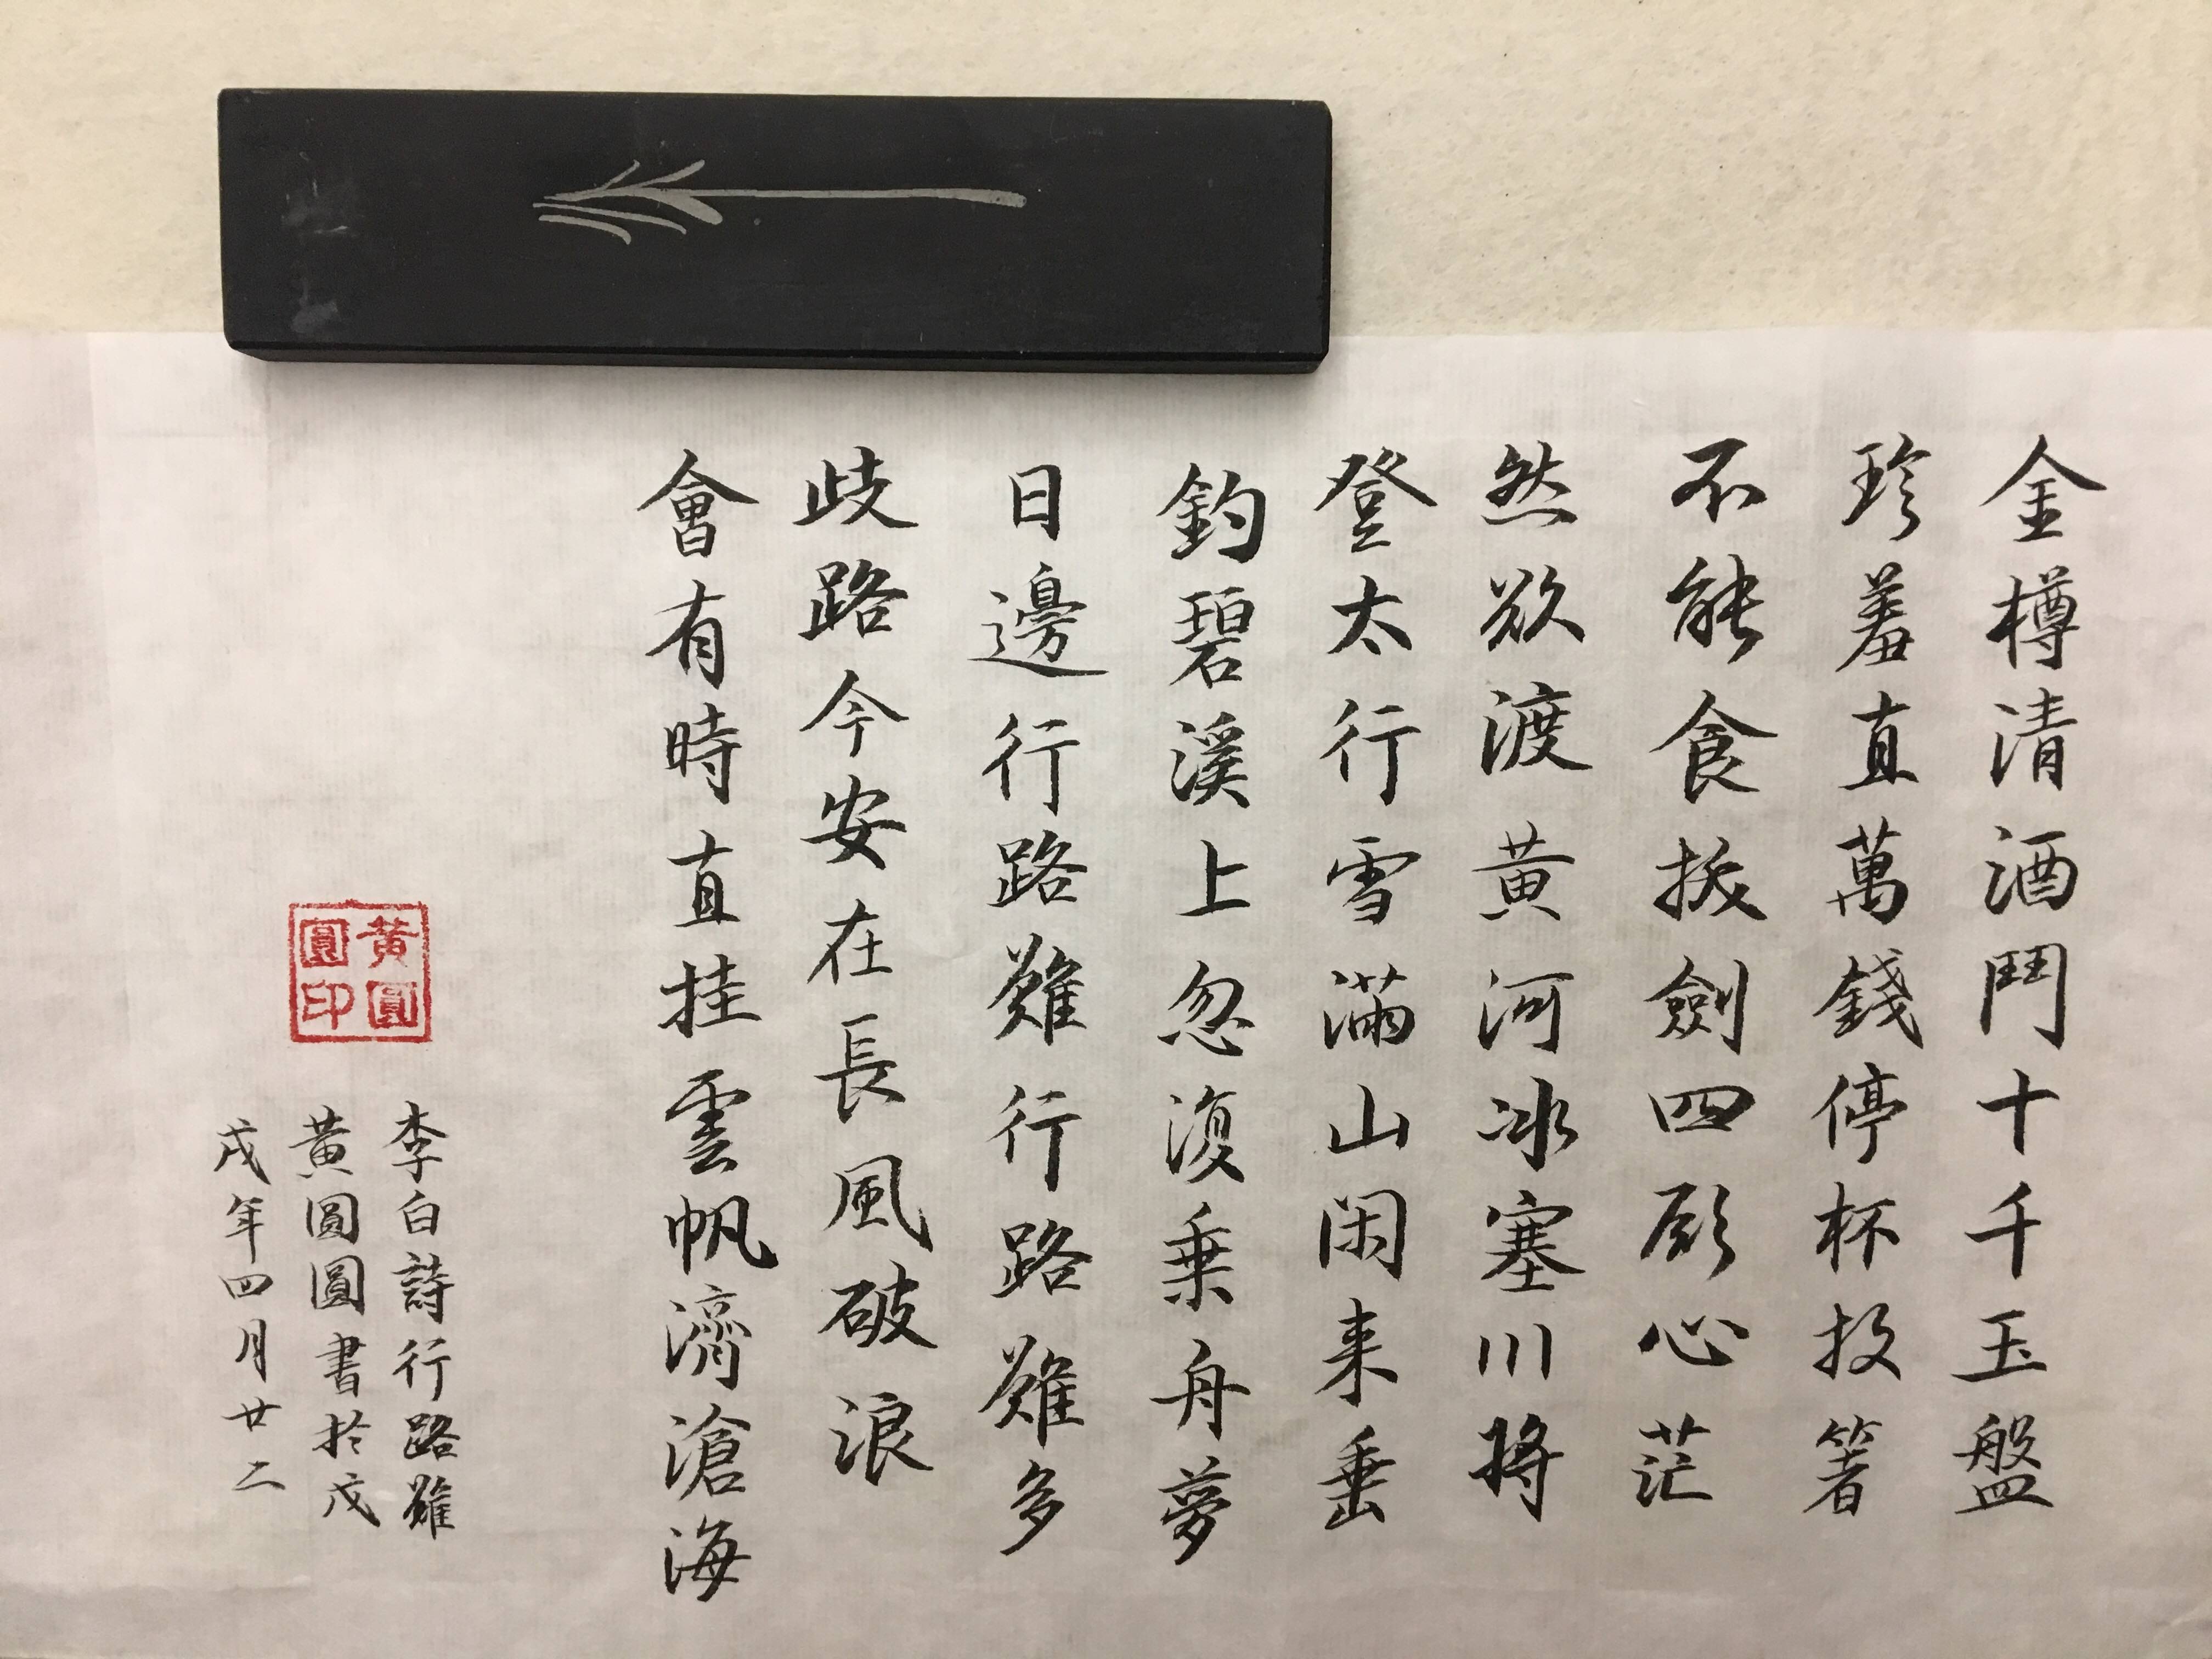 金樽清酒鬥十千玉盤
珍羞直萬錢停杯投箸
不能食拔劍四顧心茫
然欲渡黃河冰塞川將
登太行雪滿山閑来垂
釣碧溪上忽復乘舟夢
日邊行路難行路難多
歧路今安在長風破浪
會有時直挂雲帆濟滄海
李白詩行路難
黃圓圓書於戊
戌年四月廿二
黃圓
圓印